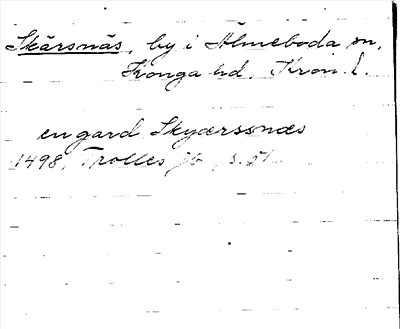 Skärsnäs, by i Älmeboda sn,
Konga hd. Kron. l.
en gard Skyærssnæs
1498, Trolles jb, s. 51